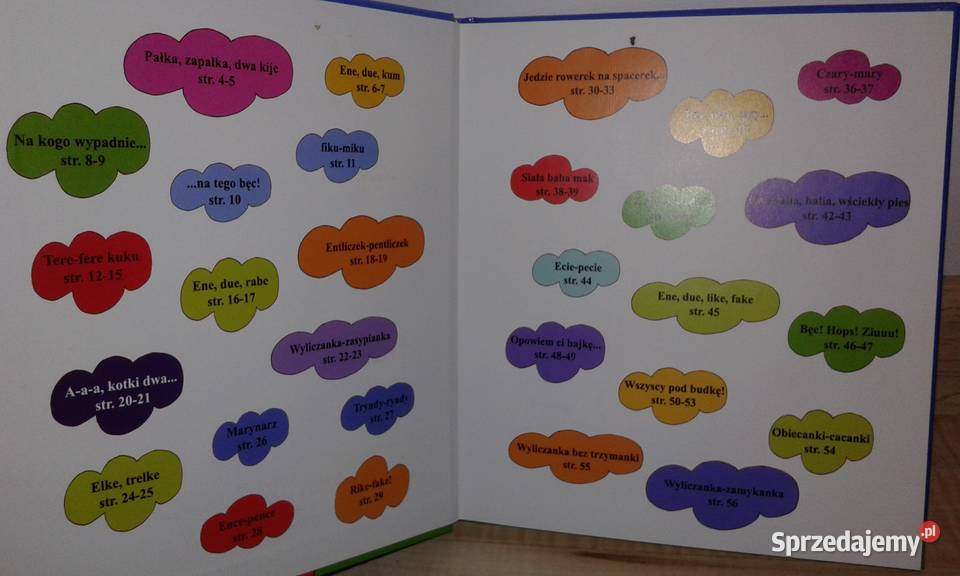 Pałka, zapałka, dwa kije
str. 4-5
Ene, due, kum
str. 6-7
Na kogo wypadnie...
str. 8-9
fiku-miku
str. 11
...na tego bęc!
str. 10
Tere-fere kuku
str. 12-15
Entliczek-pentliczek
str. 18-19
Ene, due, rabe
str. 16-17
Wyliczanka-zasypianka
str. 22-23
A-a-a, kotki dwa...
str. 20-21
Tryndy-ryndy
str. 27
Marynarz
str. 26
Elke, trelke
str. 24-25
Rike-fake!
str. 29
Ence-pence
str. 28
Jedzie rowerek na spacerek...
str. 30-33
Czary-mary
str. 36-37
Siała baba mak
str. 38-39
balia, wściekły pies
str. 42-43
Ecie-pecie
str. 44
Ene, due, like, fake
str. 45
Bęc! Hops! Ziuuu!
str. 46-47
Opowiem ci bajkę...
str. 48-49
Wszyscy pod budkę!
str. 50-53
Obiecanki-cacanki
str. 54
Wyliczanka bez trzymanki
str. 55
Wyliczanka-zamykanka
str. 56
Sprzedajemy.pl